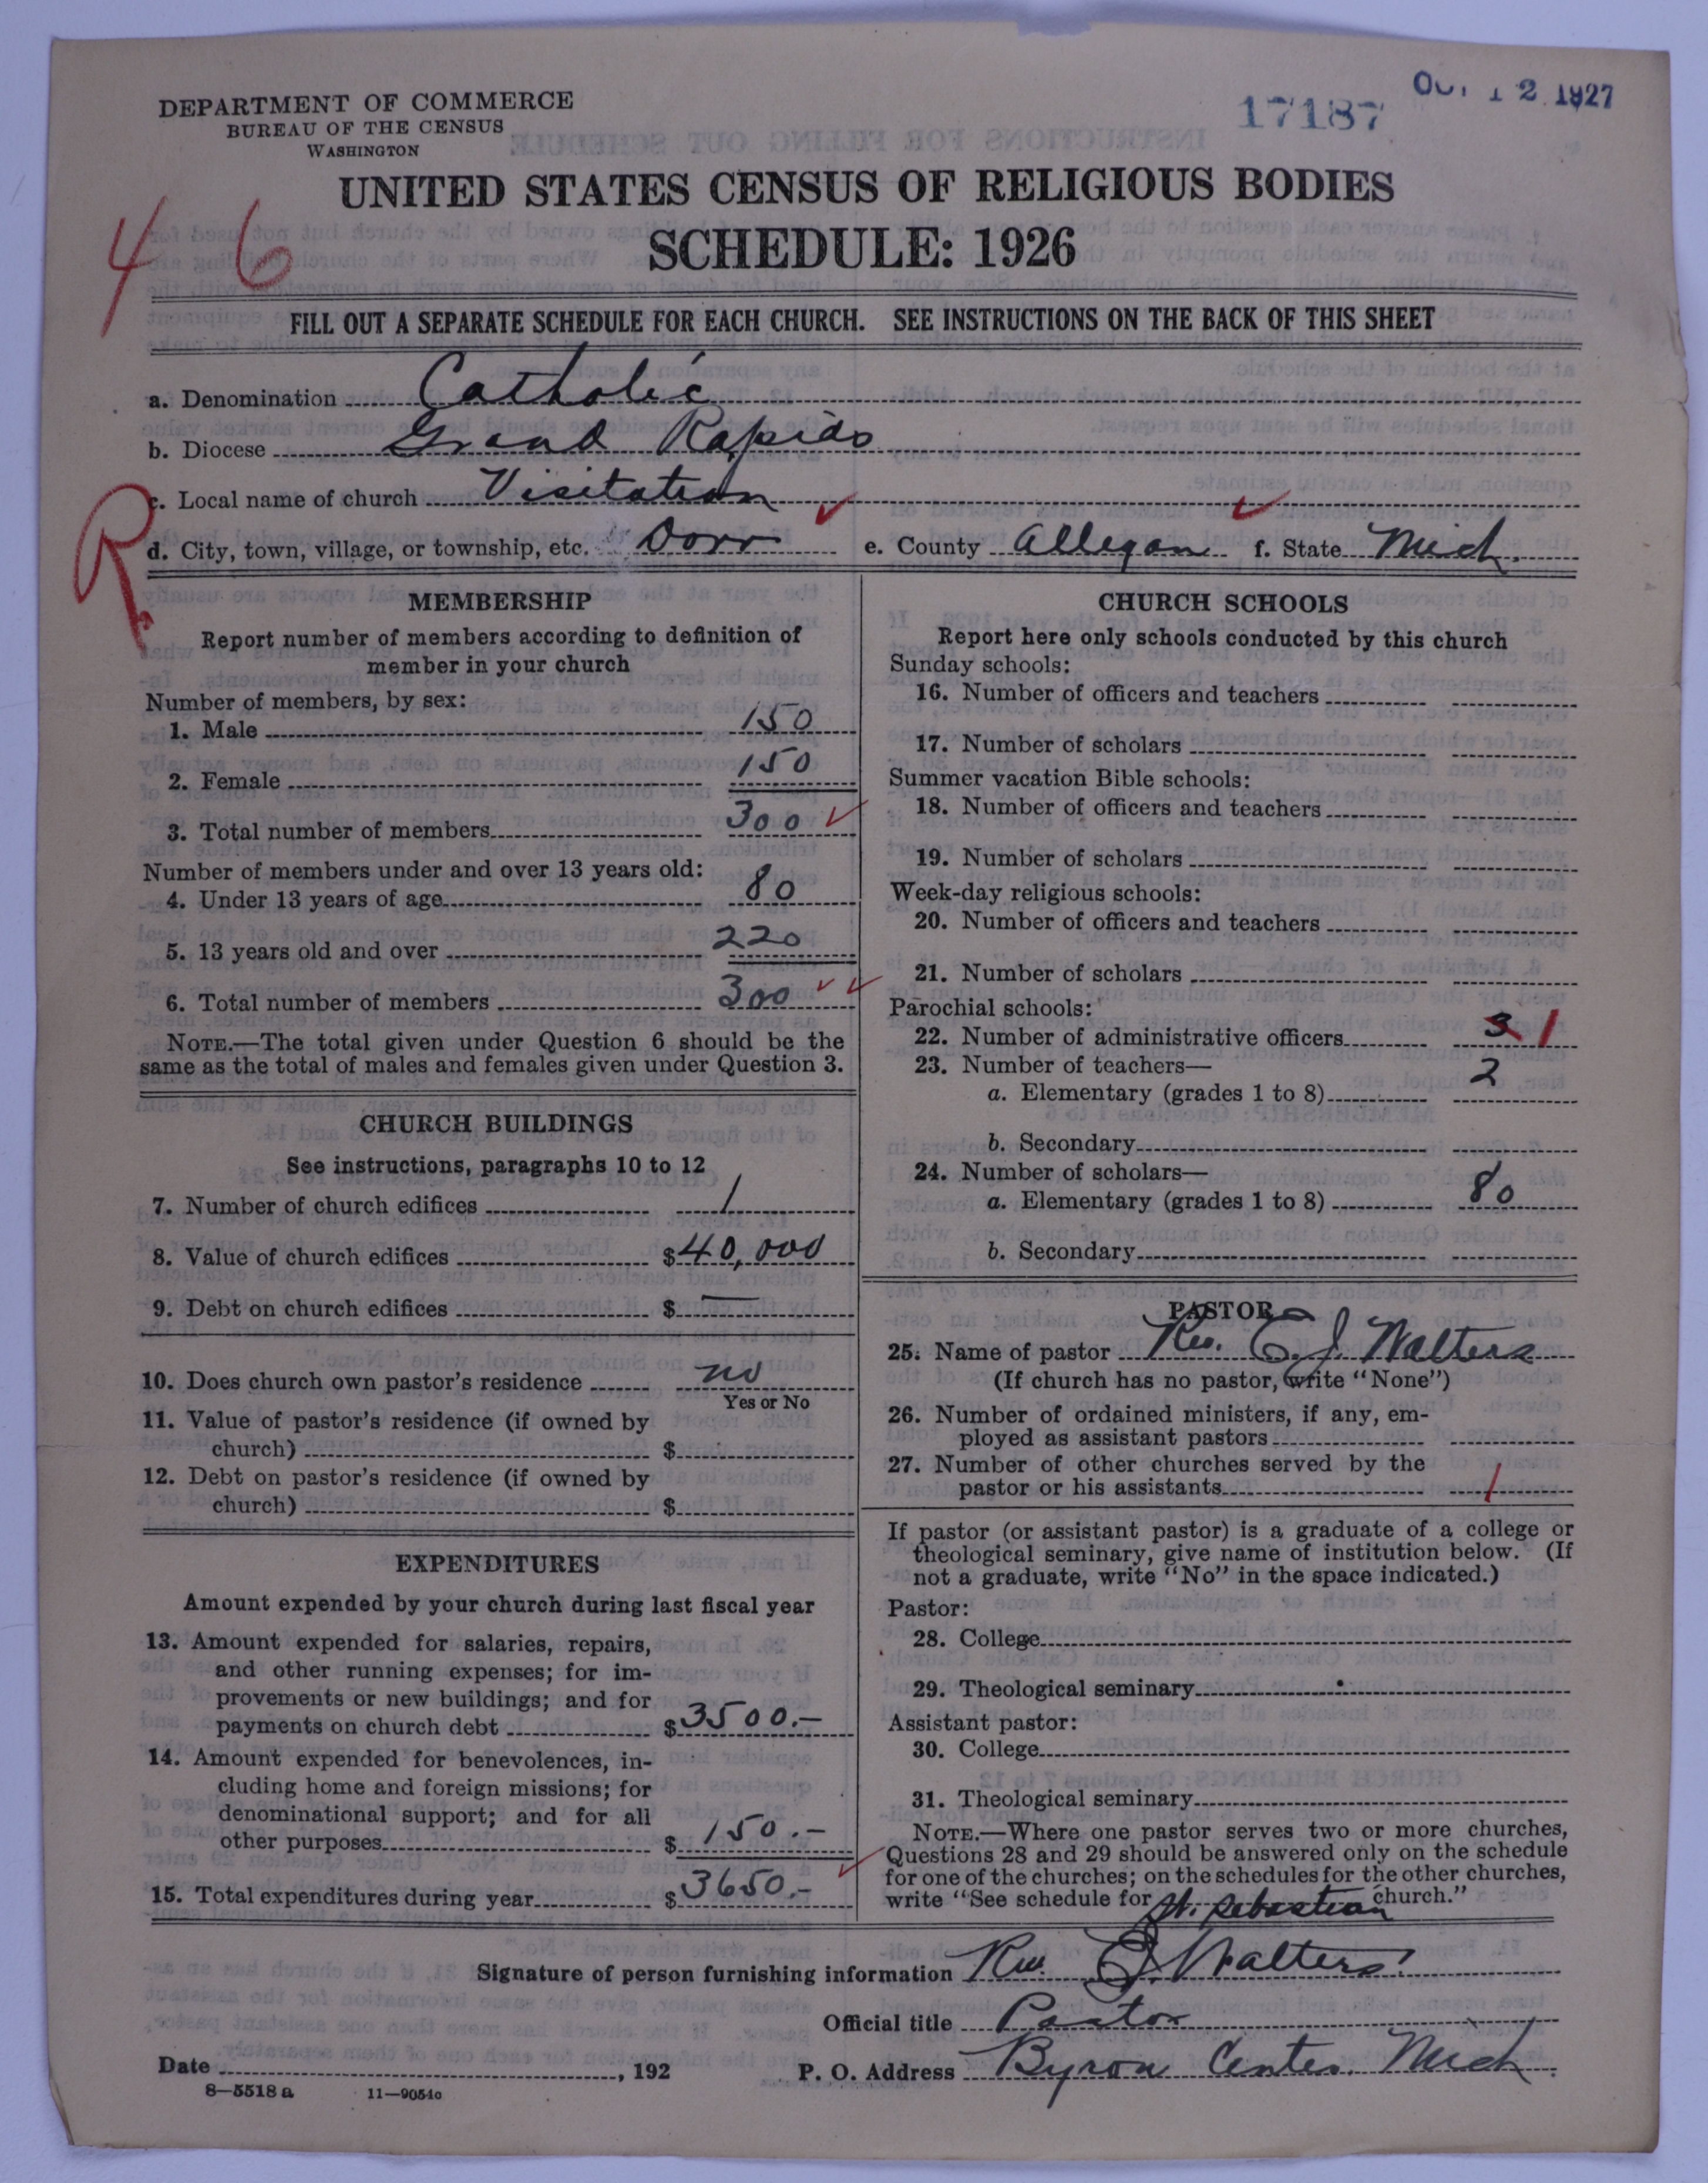 DEPARTMENT OF COMMERCE
BUREAU OF THE CENSUS
WASHINGTON
17187
12 1927
UNITED STATES CENSUS OF RELIGIOUS BODIES
SCHEDULE: 1926
4 6
FILL OUT A SEPARATE SCHEDULE FOR EACH CHURCH. SEE INSTRUCTIONS ON THE BACK OF THIS SHEET
a. Denomination Catholic
b. Diocese Grand Rapids
c. Local name of church Visitation
R.
d. City, town, village, or township, etc. Dorr e. County Allegan f. State Mich.
MEMBERSHIP
Report number of members according to definition of
member in your church
Number of members, by sex:
1. Male 150
2. Female 150
3. Total number of members 300
Number of members under and over 13 years old:
4. Under 13 years of age 80
5. 13 years old and over 220
6. Total number of members 300
NOTE.—The total given under Question 6 should be the
same as the total of males and females given under Question 3.
CHURCH BUILDINGS
See instructions, paragraphs 10 to 12
7. Number of church edifices 1
8. Value of church edifices $40,000
9. Debt on church edifices $ —
10. Does church own pastor's residence no
Yes or No
11. Value of pastor's residence (if owned by
church) $
12. Debt on pastor's residence (if owned by
church) $
EXPENDITURES
Amount expended by your church during last fiscal year
13. Amount expended for salaries, repairs,
and other running expenses; for im-
provements or new buildings; and for
payments on church debt $3500.—
14. Amount expended for benevolences, in-
cluding home and foreign missions; for
denominational support; and for all
other purposes $150.—
15. Total expenditures during year $3650.—
CHURCH SCHOOLS
Report here only schools conducted by this church
Sunday schools:
16. Number of officers and teachers
17. Number of scholars
Summer vacation Bible schools:
18. Number of officers and teachers
19. Number of scholars
Week-day religious schools:
20. Number of officers and teachers
21. Number of scholars
Parochial schools:
22. Number of administrative officers 3 1
23. Number of teachers—
a. Elementary (grades 1 to 8) 2
b. Secondary
24. Number of scholars—
a. Elementary (grades 1 to 8) 80
b. Secondary
PASTOR
25. Name of pastor Rev. E. J. Walters
(If church has no pastor, write "None")
26. Number of ordained ministers, if any, em-
ployed as assistant pastors
27. Number of other churches served by the
pastor or his assistants 1
If pastor (or assistant pastor) is a graduate of a college or
theological seminary, give name of institution below. (If
not a graduate, write "No" in the space indicated.)
Pastor:
28. College
29. Theological seminary
Assistant pastor:
30. College
31. Theological seminary
NOTE.—Where one pastor serves two or more churches,
Questions 28 and 29 should be answered only on the schedule
for one of the churches; on the schedules for the other churches,
write "See schedule for St. Sebastian church."
Signature of person furnishing information Rev. E J. Walters
Official title Pastor
Date , 192 P. O. Address Byron Center. Mich.
8—5518 a 11—9054c